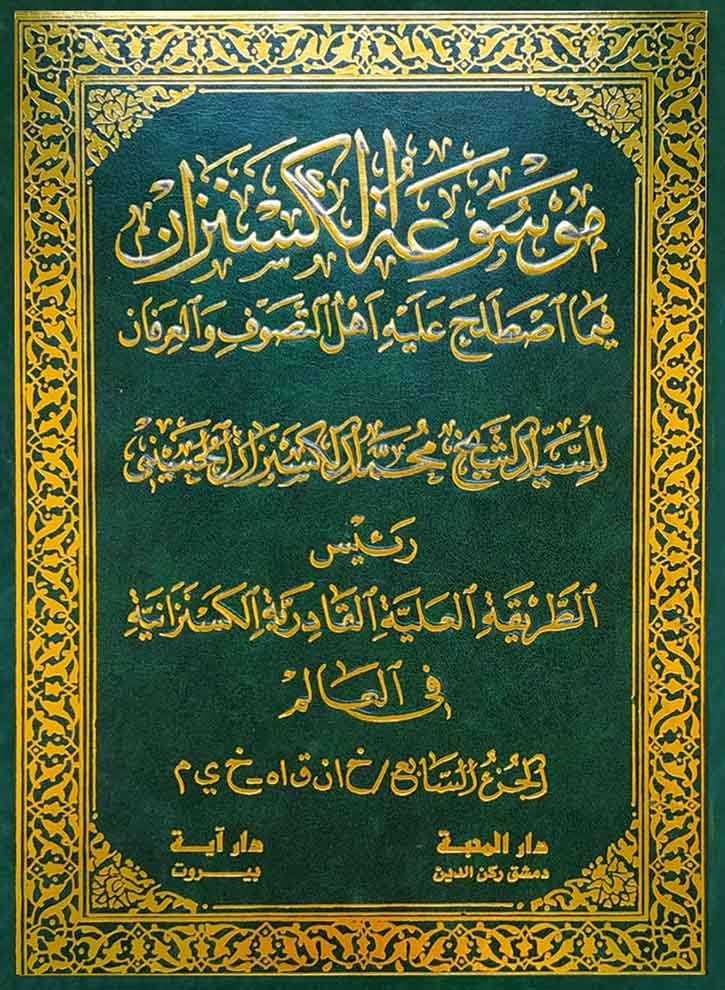 موسوعة الكسنزان
فيما اصطلح عليه أهل التصوف والعرفان
للسيد الشيخ محمد الكسنزان الحسيني
رئيس
الطريقة العلية القادرية الكسنزانية
في العالم
الجزء السابع / خ ا ن ق ا ه - خ ي م
دار المحبة
دمشق ركن الدين
دار آية
بيروت